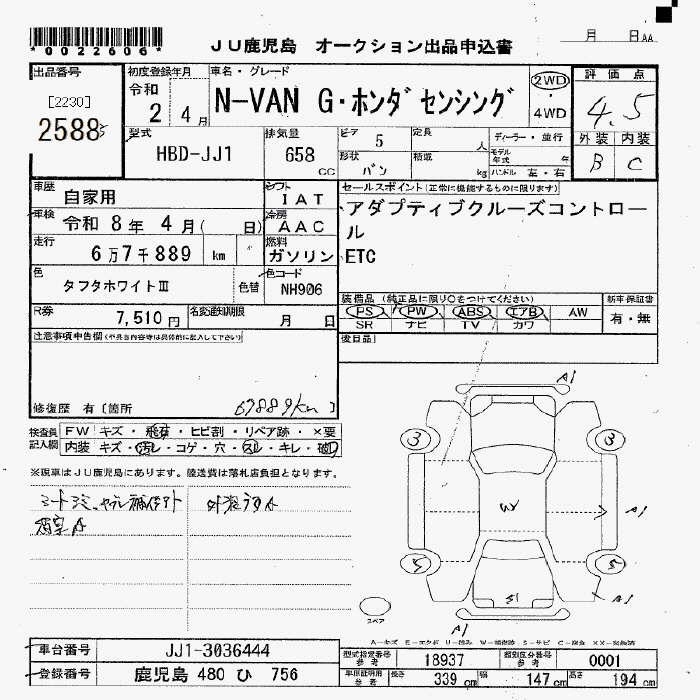 *0022606*
JU鹿児島 オークション出品申込書
月 日AA
出品番号
[2230]
2588
初度登録年月
令和
2 4月
車名・グレード
N-VAN G・ホンダセンシング
2WD
・
4WD
評価点
4.5
外装 内装
B C
型式
HBD-JJ1
排気量
658 cc
ドア 5
定員 人
ディーラー・並行
形状 バン
積載 kg
モデル年式 年
ハンドル 左・右
車歴 自家用
シフト IAT
車検 令和 8年 4月( 日)
冷房 AAC
走行 6万7千889 km
燃料 ガソリン
色 タフタホワイトⅢ
色替
色コード NH906
セールスポイント(正常に機能するものに限ります)
アダプティブクルーズコントロー
ル
ETC
R券 7,510円
名変通知期限 月 日
装備品 (純正品に限り○をつけてください)
PS PW ABS エアB AW
SR ナビ TV カワ
新車保証書
有・無
注意事項申告欄(不具合内容等は具体的に記入して下さい)
後日品
修復歴 有〔箇所 67889km〕
検査員記入欄
FW キズ・飛石・ヒビ割・リペア跡・×要
内装 キズ・汚レ・コゲ・穴・スレ・キレ・破
※現車はJU鹿児島にあります。陸送費は落札店負担となります。
A1
3 3
W
A1
5 5
S1
A1
A1
スペア
車台番号 JJ1-3036444
登録番号 鹿児島 480 ひ 756
型式指定番号 参考 18937
類別区分番号 参考 0001
車庫証明用 参考 長さ 339cm 幅 147cm 高さ 194cm